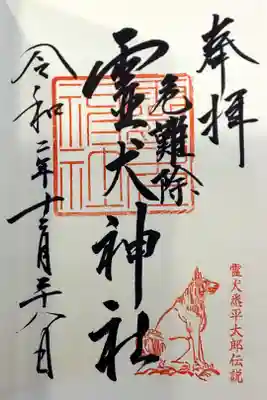 奉拝
危難除
靈犬神社
令和二年十二月二十八日
霊犬悉平太郎伝説